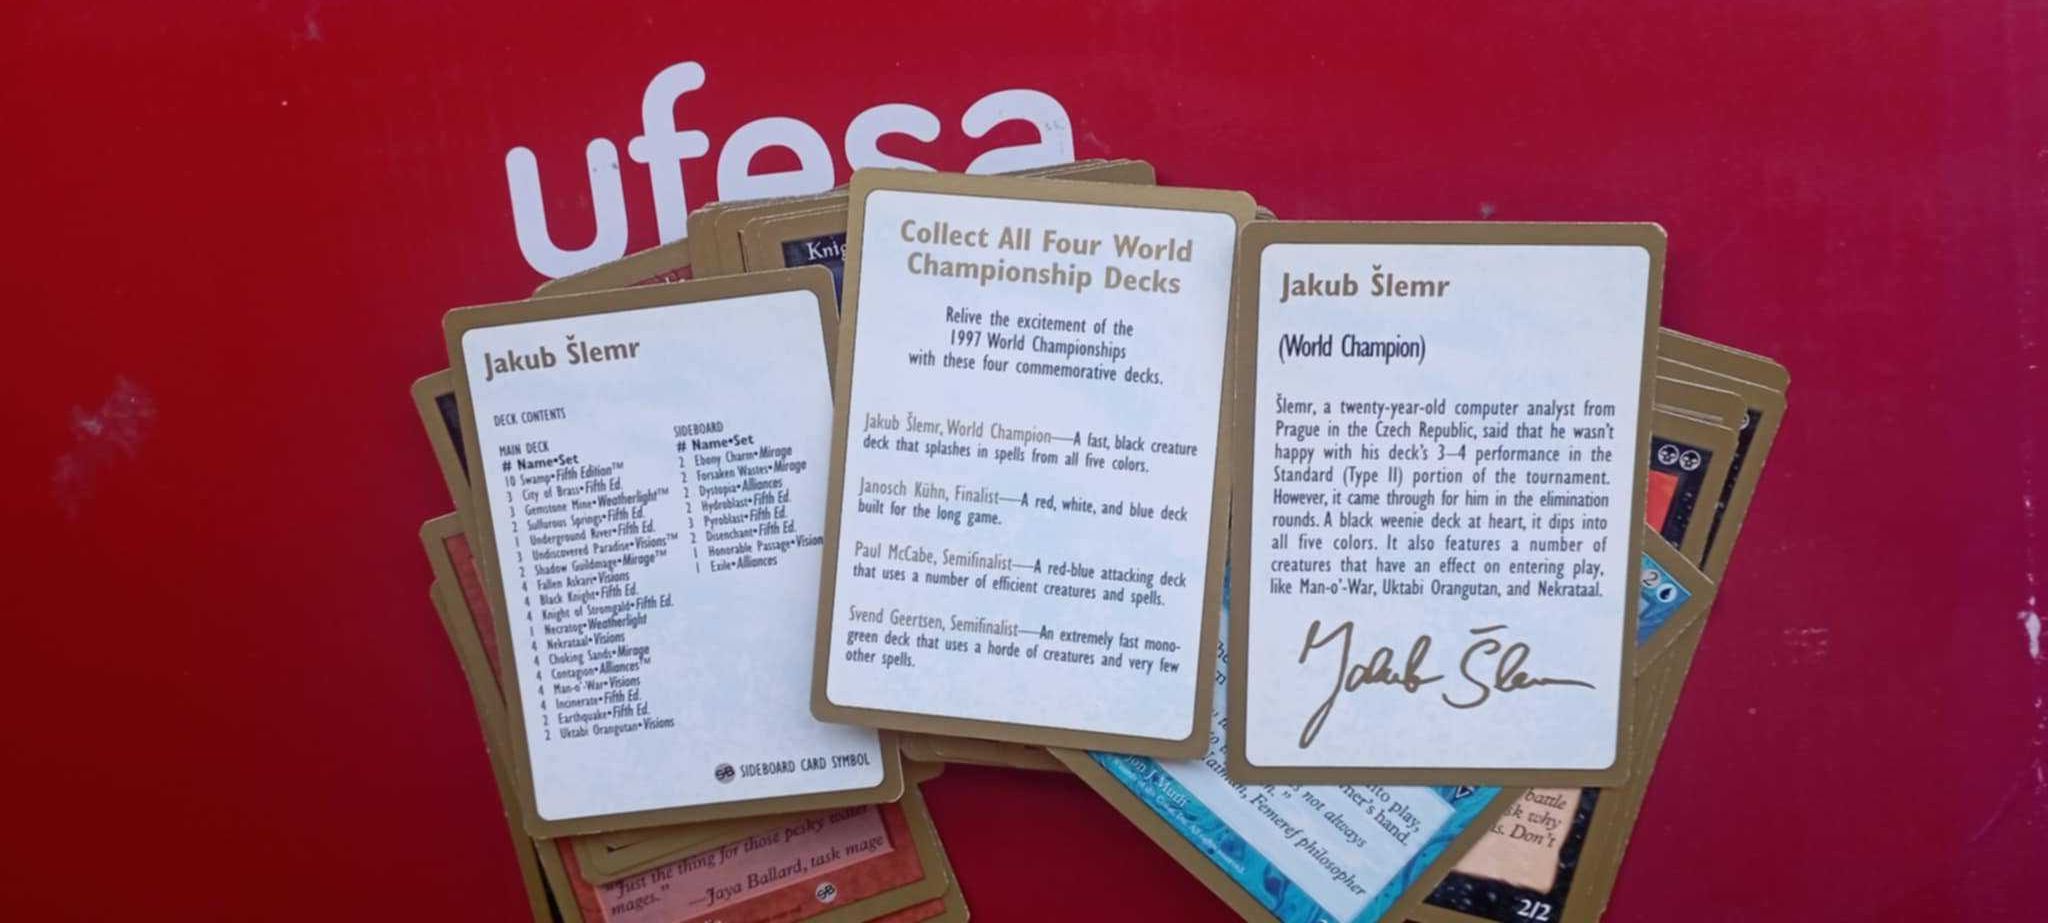 ufesa
Knig
Jakub Šlemr
DECK CONTENTS
MAIN DECK
# Name•Set
10 Swamp•Fifth Edition™
3 City of Brass•Fifth Ed.
3 Gemstone Mine•Weatherlight™
2 Sulfurous Springs•Fifth Ed.
1 Underground River•Fifth Ed.
3 Undiscovered Paradise•Visions™
2 Shadow Guildmage•Mirage™
4 Fallen Askari•Visions
4 Black Knight•Fifth Ed.
4 Knight of Stromgald•Fifth Ed.
1 Necratog•Weatherlight
4 Nekrataal•Visions
4 Choking Sands•Mirage
4 Contagion•Alliances™
4 Man-o'-War•Visions
4 Incinerate•Fifth Ed.
2 Earthquake•Fifth Ed.
2 Uktabi Orangutan•Visions
SIDEBOARD
# Name•Set
2 Ebony Charm•Mirage
2 Forsaken Wastes•Mirage
2 Dystopia•Alliances
2 Hydroblast•Fifth Ed.
3 Pyroblast•Fifth Ed.
2 Disenchant•Fifth Ed.
1 Honorable Passage•Vision
1 Exile•Alliances
SB SIDEBOARD CARD SYMBOL
Collect All Four World
Championship Decks
Relive the excitement of the
1997 World Championships
with these four commemorative decks.
Jakub Šlemr, World Champion—A fast, black creature
deck that splashes in spells from all five colors.
Janosch Kühn, Finalist—A red, white, and blue deck
built for the long game.
Paul McCabe, Semifinalist—A red-blue attacking deck
that uses a number of efficient creatures and spells.
Svend Geertsen, Semifinalist—An extremely fast mono-
green deck that uses a horde of creatures and very few
other spells.
Jakub Šlemr
(World Champion)
Šlemr, a twenty-year-old computer analyst from
Prague in the Czech Republic, said that he wasn't
happy with his deck's 3–4 performance in the
Standard (Type II) portion of the tournament.
However, it came through for him in the elimination
rounds. A black weenie deck at heart, it dips into
all five colors. It also features a number of
creatures that have an effect on entering play,
like Man-o'-War, Uktabi Orangutan, and Nekrataal.
Jakub Šlemr
2
"Just the thing for those pesky water
mages." —Jaya Ballard, task mage
SB
into play,
ner's hand.
not always
, Femeref philosopher
Jon J. Muth
battle
sk why
s. Don't
2/2